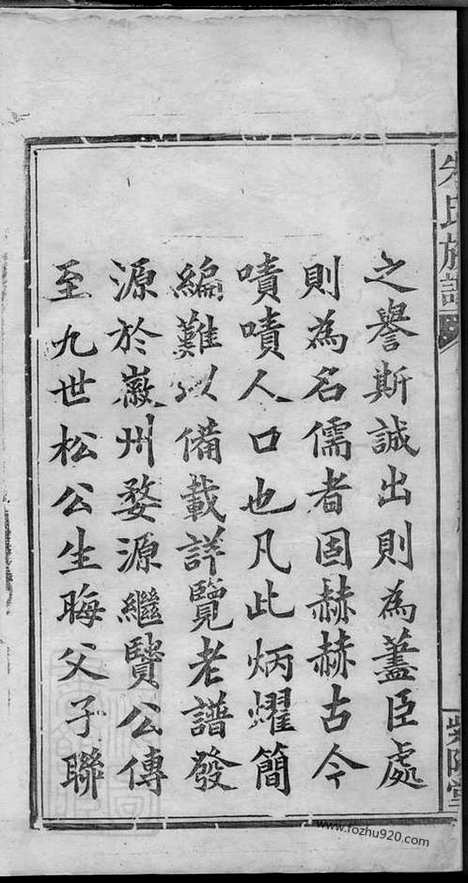 朱氏族譜
之譽斯誠出則為藎臣處
則為名儒者固赫赫古今
嘖嘖人口也凡此炳耀簡
編難以備載詳覽老譜發
源於徽州婺源繼賢公傳
至九世松公生晦父子聯
紫陽堂
www.fozhu920.com